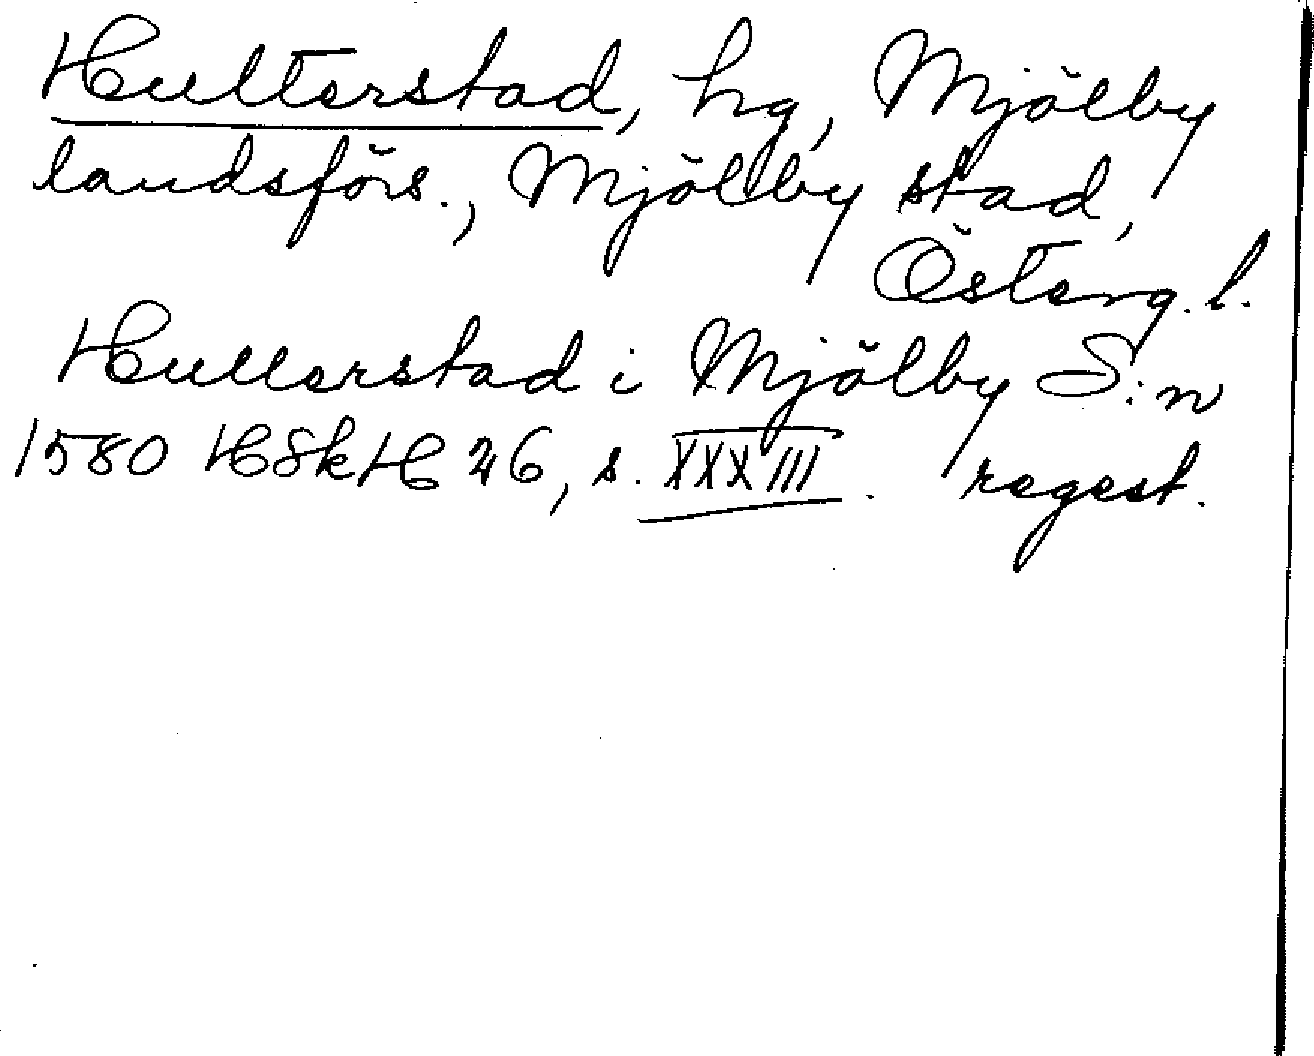 Hulterstad, hg, Mjölby
landsförs., Mjölby stad,
Österg. l.
Hullerstad i Mjölby S:n
1580 HSkH 26, s. XXXIII. regest.